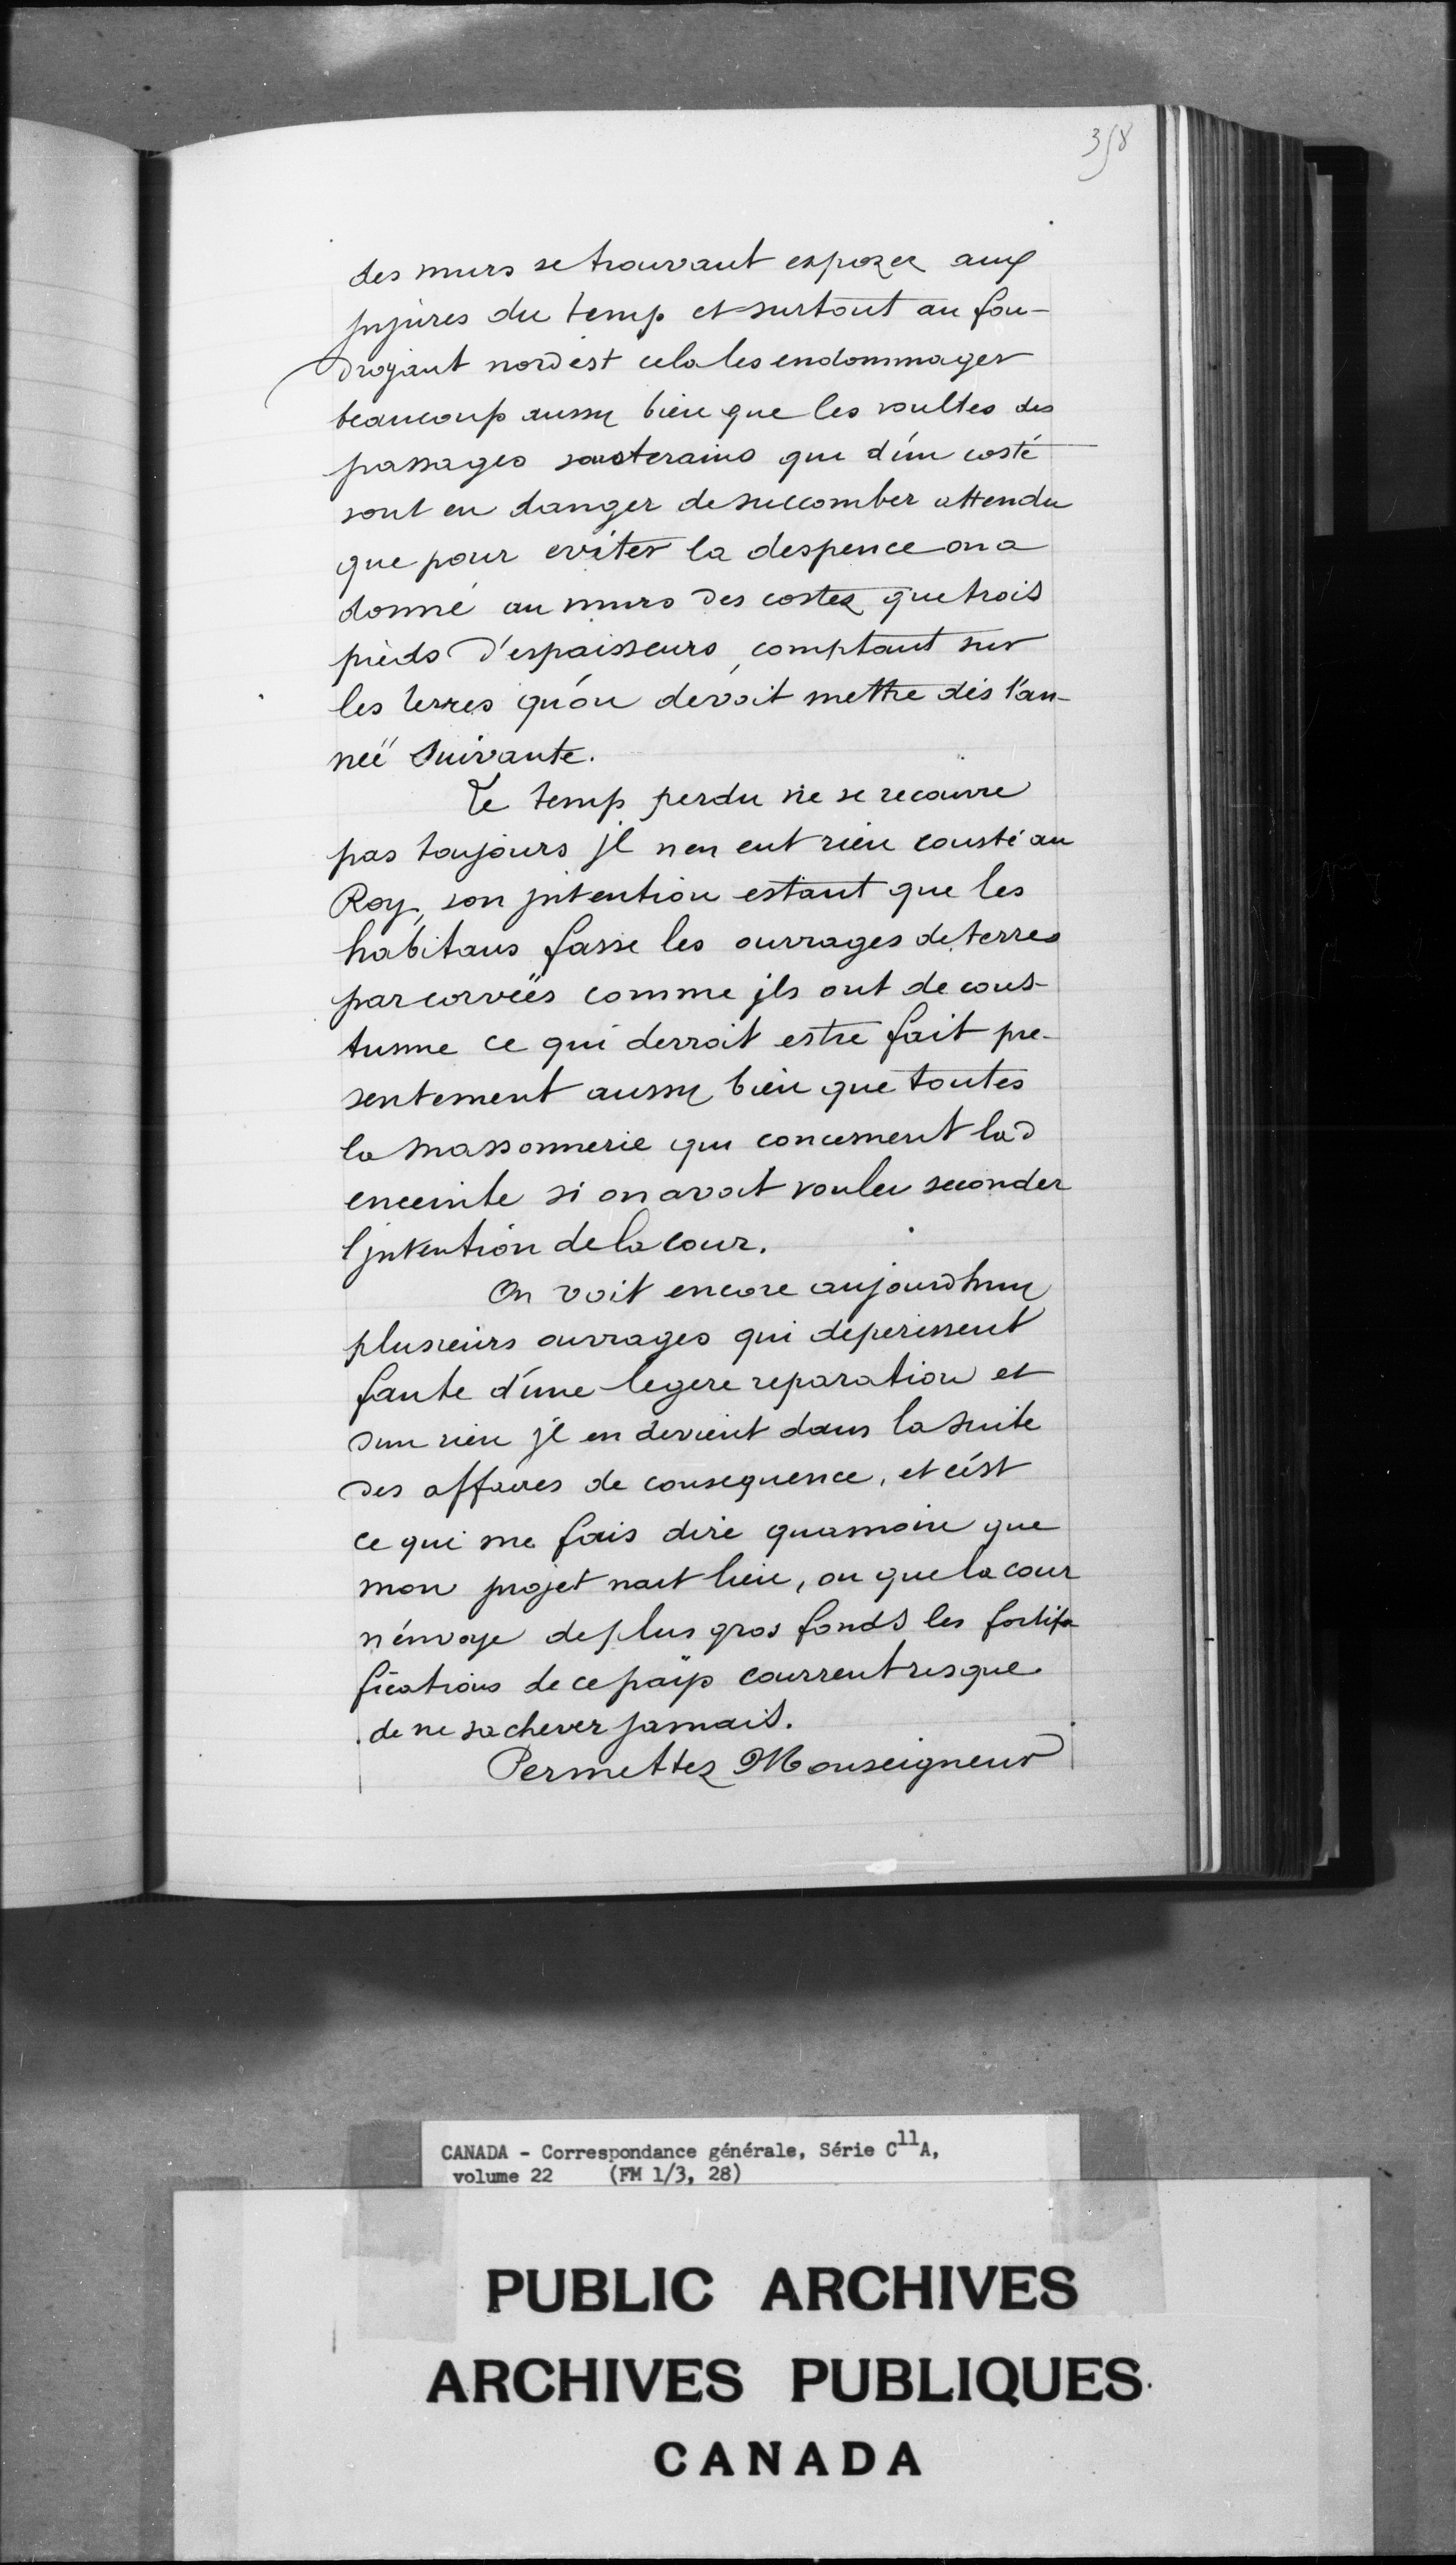 358
des murs se trouvant expozez aux
jnjures du temp et surtout au fou-
droyant nordest cela les endommager
beaucoup aussy bien que les voultes des
passages sousterains que d'un costé
sont en danger de succomber attendu
que pour eviter la despence on a
donné au murs des costez que trois
pieds d'espaisseurs, comptant sur
les terres qu'on devoit mettre dés l'an-
neë Suivante.
Le temp perdu ne se recouvre
pas toujours jl nen eut rien cousté au
Roy, son jntention estant que les
habitans fasse les ouvrages de terres
par corveës comme jls ont de cous-
tume ce qui devroit estre fait pre-
sentement aussy bien que toutes
la massonnerie qui concernent lad
enceinte si on avoit voulu seconder
l'jntention de la cour.
On voit encore aujourdhuy
plusieurs ouvrages qui deperissent
faute d'une legere reparation et
dun rien jl en devient dans la suite
des affaires de consequence, et c'est
ce qui me fais dire quamoin que
mon projet nait lieu, ou que la cour
n'envoye de plus gros fonds les fortifi
fications de ce païs courrent risque
de ne sachever jamais.
Permettez Monseigneur
CANADA - Correspondance générale, Série C11A,
volume 22 (FM 1/3, 28)
PUBLIC ARCHIVES
ARCHIVES PUBLIQUES
CANADA